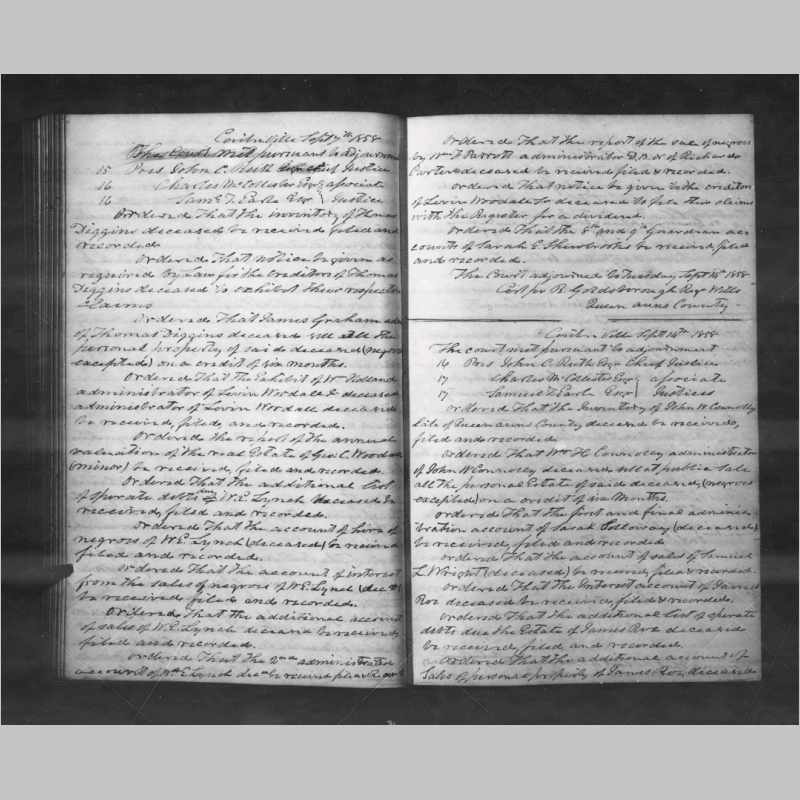 Centreville Sept 7th 1858
The Court met pursuant to adjournment
15 Pres John C. Ruth Esqr Chief Justice
16 Charles McCollister Esqr associate
16 Saml T. Earle Esqr Justice
Ordered That the inventory of Thomas
Diggins deceased be received filed and
recorded
Ordered That notice be given as
required by law for the creditors of Thomas
Diggins deceased to exhibit their respective
claims
Ordered That James Graham adm
of Thomas Diggins deceased sell all the
personal property of said deceased (negroes
excepted) on a credit of six months.
Ordered That the Exhibit of Wm
administrator of Levin Woodall deceased
administrator of Levin Woodall deceased
be received, filed, and recorded.
Ordered the report of the annual
valuation of the real Estate of Geo. C. Woodall
(minor) be received, filed and recorded.
Ordered That the additional List
of sperate debts due W. E. Lynch deceased be
received, filed and recorded.
Ordered That the account of hire of
negroes of W E. Lynch (deceased) be received
filed and recorded.
Ordered That the account of interest
from the sales of negroes of W E. Lynch (decd)
be received filed and recorded.
Ordered That the additional account
of sales of W. E. Lynch deceased be received
filed and recorded.
Ordered That the 2nd administration
account of Wm E Lynch decd be received filed & recorded
Ordered That the report of the sale of negroes
by Wm F Parrott administrator D.B.N of Richard
Carter deceased be received filed & recorded.
Ordered that notice be given to the creditors
of Levin Woodall deceased to file their claims
with the Register for a dividend.
Ordered That the 8th and 9th Guardian ac-
counts of Sarah E. be received, filed
and recorded.
The Court adjourned to Tuesday Sept 14th 1858
Test per R. Goldsborough Regr Wills
Queen Anns County
Centreville Sept 14th 1858
The court met pursuant to adjournment
16 Pres John C. Ruth Esqr Chief Justice
17 Charles McCollister Esqr associate
17 Samuel T Earle Esqr Justices
Ordered That the Inventory of John W Connolly
late of Queen anns County deceased be received,
filed and recorded.
Ordered That Wm H. Connolly administrator
of John W Connolly deceased, sell at public sale
all the personal Estate of said deceased, (negroes
excepted) on a credit of six Months.
Ordered that the first and final adminis-
tration account of Sarah Holloway (deceased)
be received, filed and recorded
Ordered That the account of sales of Samuel
L. Wright (deceased) be received, filed & recorded.
Ordered That the Interest account of James
Roe deceased be received, filed & recorded.
Ordered That the additional list of sperate
debts due the Estate of James Roe deceased
be received, filed and recorded.
Ordered That the additional account of
Sales of personal property of James Roe, deceased